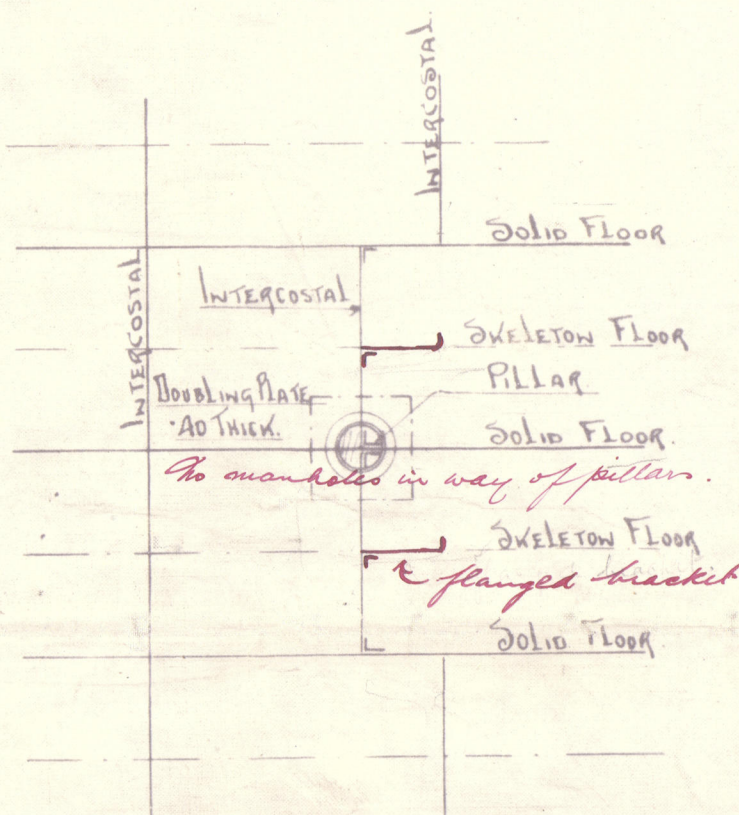 INTERCOSTAL
SOLID FLOOR
INTERCOSTAL
INTERCOSTAL
SKELETON FLOOR
PILLAR
DOUBLING PLATE
·40 THICK.
SOLID FLOOR.
No manholes in way of pillars.
SKELETON FLOOR
flanged bracket
SOLID FLOOR